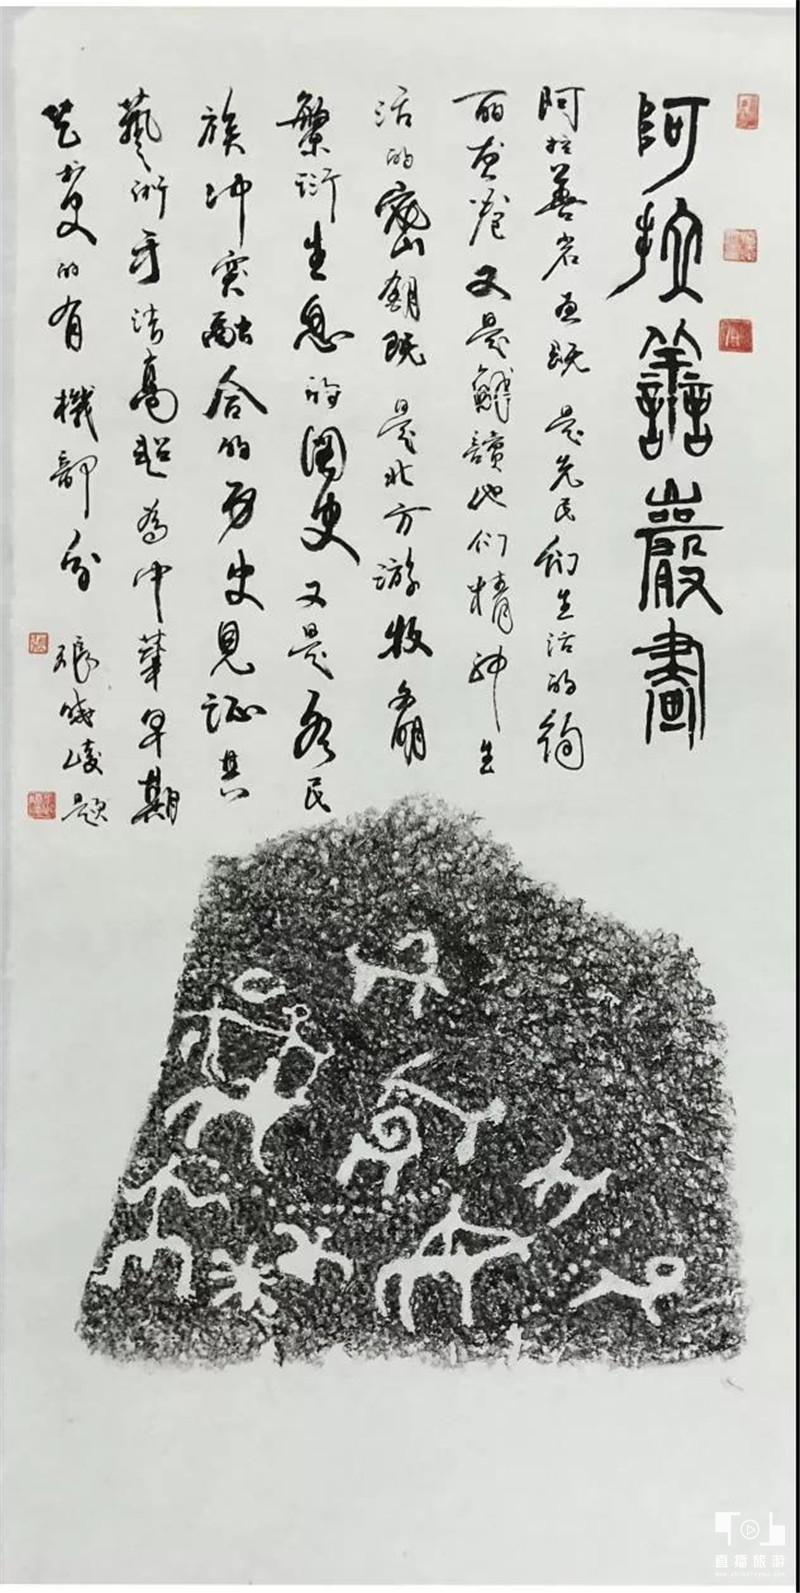 阿拉善巖畫
阿拉善岩画既是先民们生活的绚
丽画卷又是解讀他们精神生
活的密鑰既是北方游牧文明
繁衍生息的图史又是各民
族冲突融合的历史見证其
藝術手法高超為中華早期
艺术史的有機部分
題
直播旅游